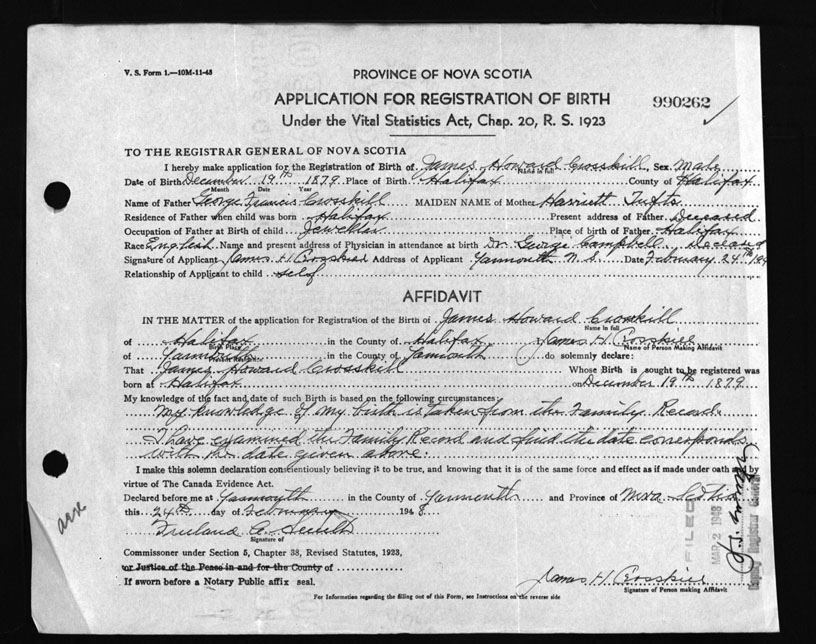 V. S. Form 1.—10M-11-45
PROVINCE OF NOVA SCOTIA
APPLICATION FOR REGISTRATION OF BIRTH
990262
Under the Vital Statistics Act, Chap. 20, R. S. 1923
TO THE REGISTRAR GENERAL OF NOVA SCOTIA
I hereby make application for the Registration of Birth of James Howard Crosskill, Sex Male
Name in full
Date of Birth December 19th 1879 Place of Birth Halifax County of Halifax
Month Date Year
Name of Father George Francis Crosskill MAIDEN NAME of Mother Harriett Tufts
Residence of Father when child was born Halifax Present address of Father Deceased
Occupation of Father at Birth of child Jeweller Place of birth of Father Halifax
Race English Name and present address of Physician in attendance at birth Dr. George Campbell. Deceased
Signature of Applicant James H Crosskill Address of Applicant Yarmouth N. S. Date February 24th
Relationship of Applicant to child self
AFFIDAVIT
IN THE MATTER of the application for Registration of the Birth of James Howard Crosskill
Name in full
of Halifax in the County of Halifax, James H. Crosskill
Birth Place Name of Person Making Affidavit
of Yarmouth in the County of Yarmouth do solemnly declare:
Present Residence
That James Howard Crosskill Whose Birth is sought to be registered was
born at Halifax on December 19th 1879
My knowledge of the fact and date of such Birth is based on the following circumstances:
My knowledge of my birth is taken from the Family Record.
I have examined the Family Record and find the date corresponds
with the date given above.
I make this solemn declaration conscientiously believing it to be true, and knowing that it is of the same force and effect as if made under oath and by
virtue of The Canada Evidence Act.
Declared before me at Yarmouth in the County of Yarmouth and Province of Nova Scotia
this 24th day of February 1948
Signature of
Commissoner under Section 5, Chapter 38, Revised Statutes, 1923,
or Justice of the Peace in and for the County of
If sworn before a Notary Public affix seal.
James H Crosskill
Signature of Person making Affidavit
For Information regarding the filling out of this Form, see Instructions on the reverse side
FILED
MAR 2 1948
Deputy Registrar General